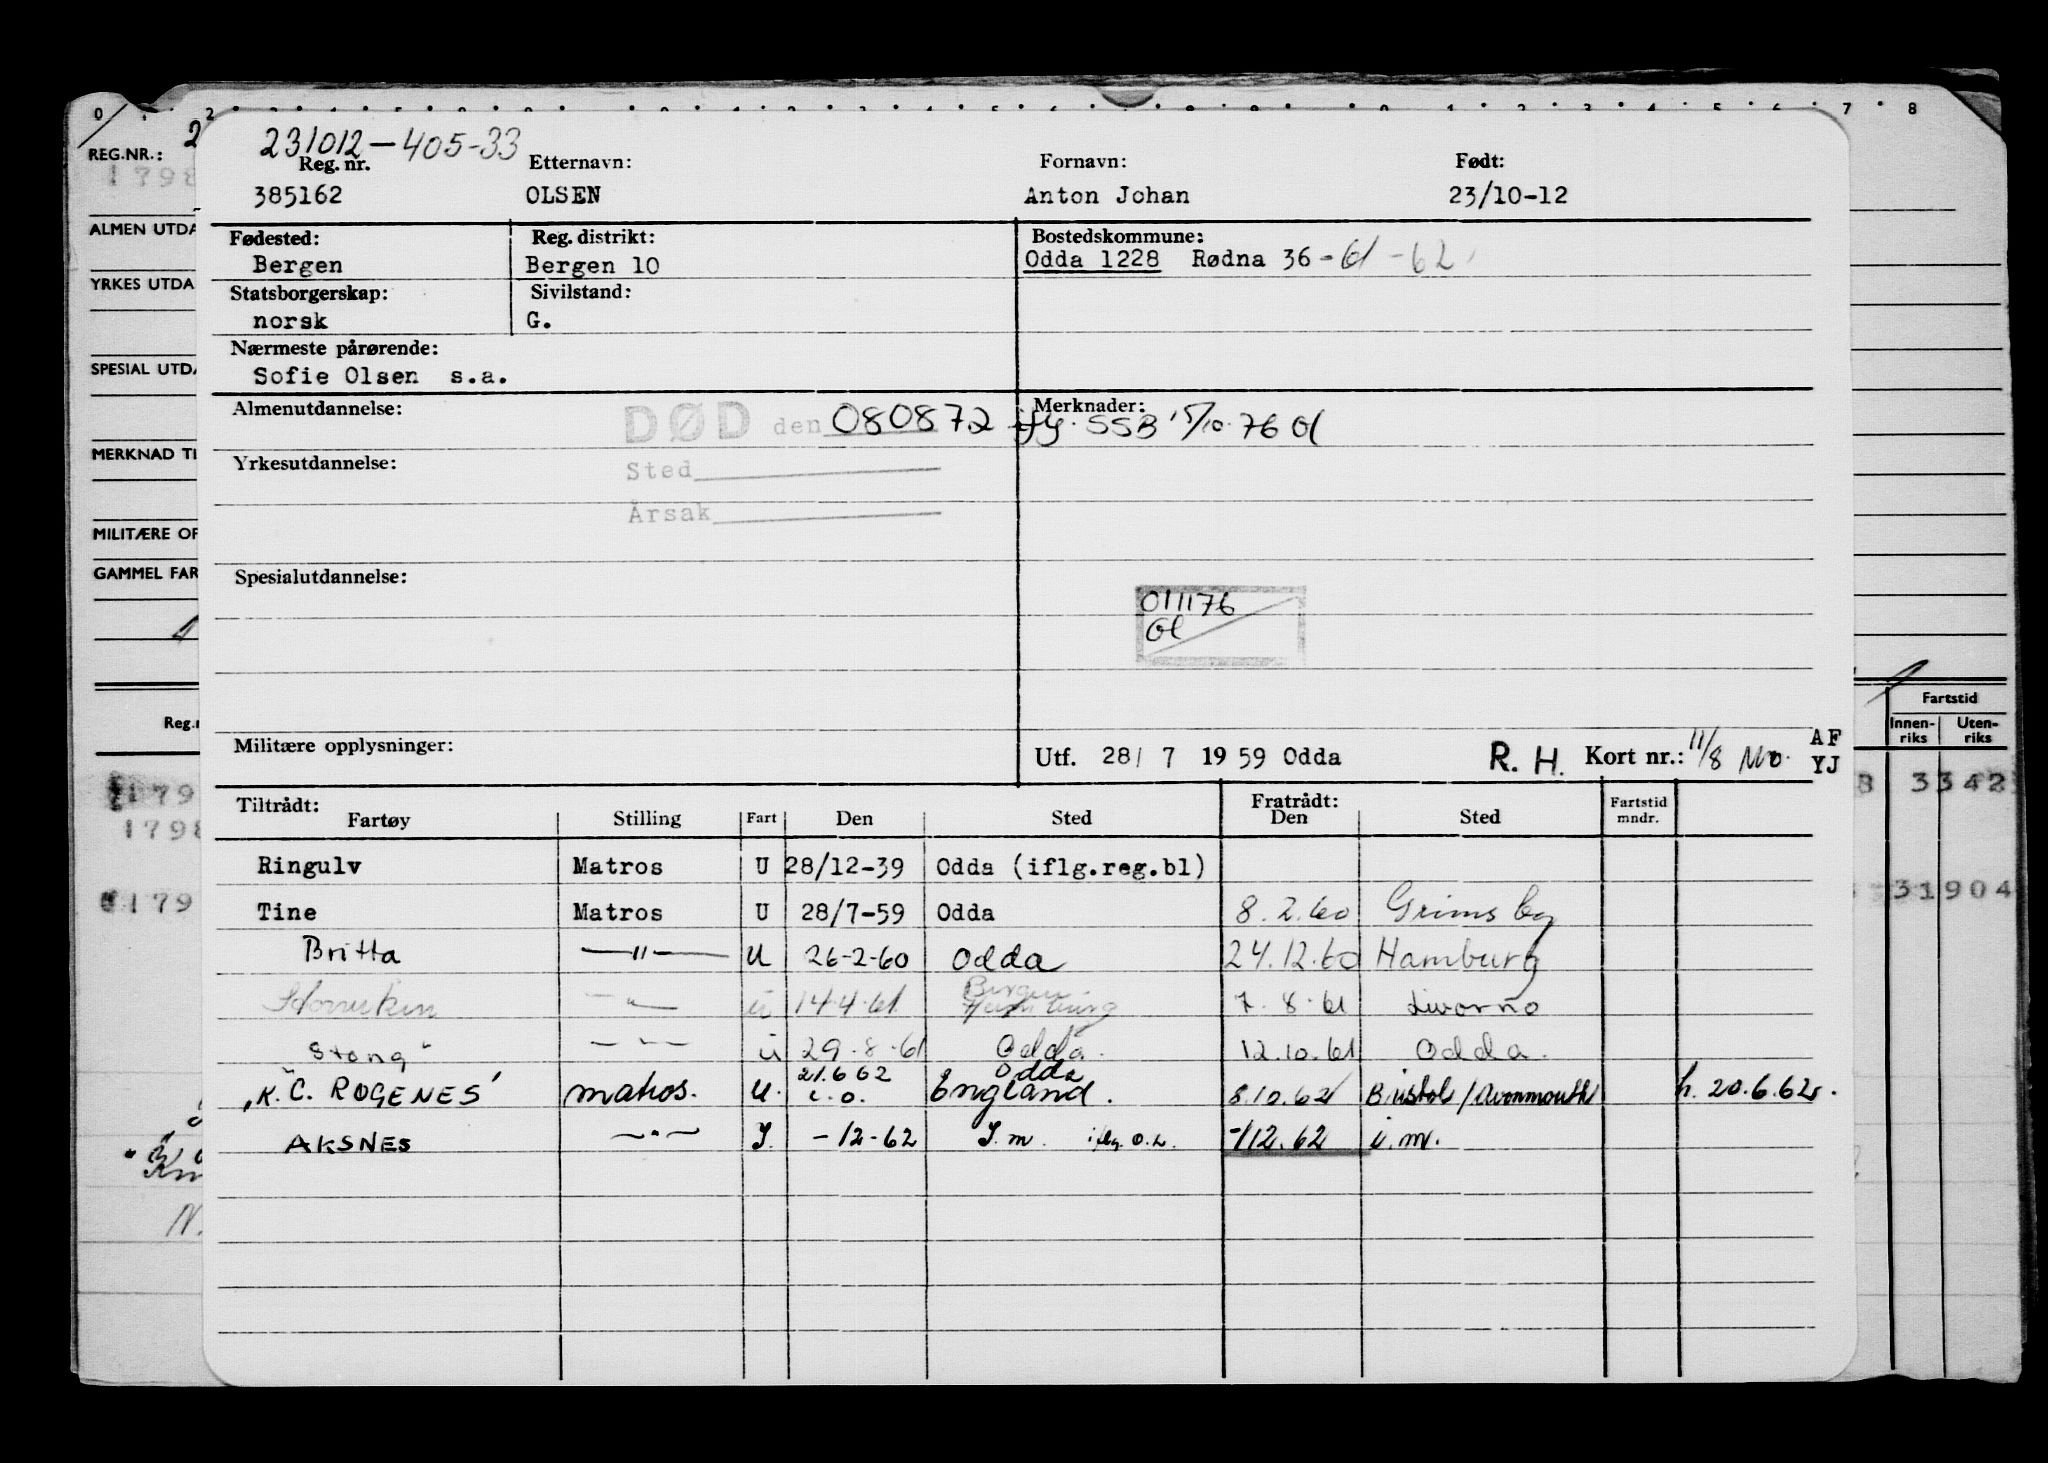 231012-405-33
Reg. nr. Etternavn: Fornavn: Født:
385162 OLSEN Anton Johan 23/10-12
Fødested: Reg. distrikt: Bostedskommune:
Bergen Bergen 10 Odda 1228 Rødna 36-61-62
Statsborgerskap: Sivilstand:
norsk G.
Nærmeste pårørende:
Sofie Olsen s.a.
Almenutdannelse: DØD den 080872 Merknader:
SSB 15/10-76 Ol
Yrkesutdannelse: Sted
Årsak
Spesialutdannelse:
011176
Ol
Militære opplysninger: Utf. 28/ 7 1959 Odda R. H. Kort nr.: 11/8 AF
YJ
Tiltrådt: Fratrådt:
Fartøy Stilling Fart Den Sted Den Sted Fartstid mndr.
Ringulv Matros U 28/12-39 Odda (iflg.reg.bl)
Tine Matros U 28/7-59 Odda 8.2.60 Grimsby
Britta —"— U 26-2-60 Odda 24.12.60 Hamburg
—"— u 14-4-61 Bergen 7-8-61 Livorno
Stong" —"— u 29-8-61 Odda. 12.10.61 Odda.
21.6 62 Odda
"K.C. ROGENES" matros. U. i.o. England. 8.10.62 Bristol/Avonmouth h. 20.6.62.
AKSNES —"— I. -12-62 I.m. iflg. O.L. -/12.62 i.m.
REG.NR.: 2
1798
ALMEN UTDA
YRKES UTDA
SPESIAL UTDA
MERKNAD TI
MILITÆRE OP
GAMMEL FAR
Reg.n
179
1798
179
Fartstid
Innen-riks Uten-riks
3342
31904